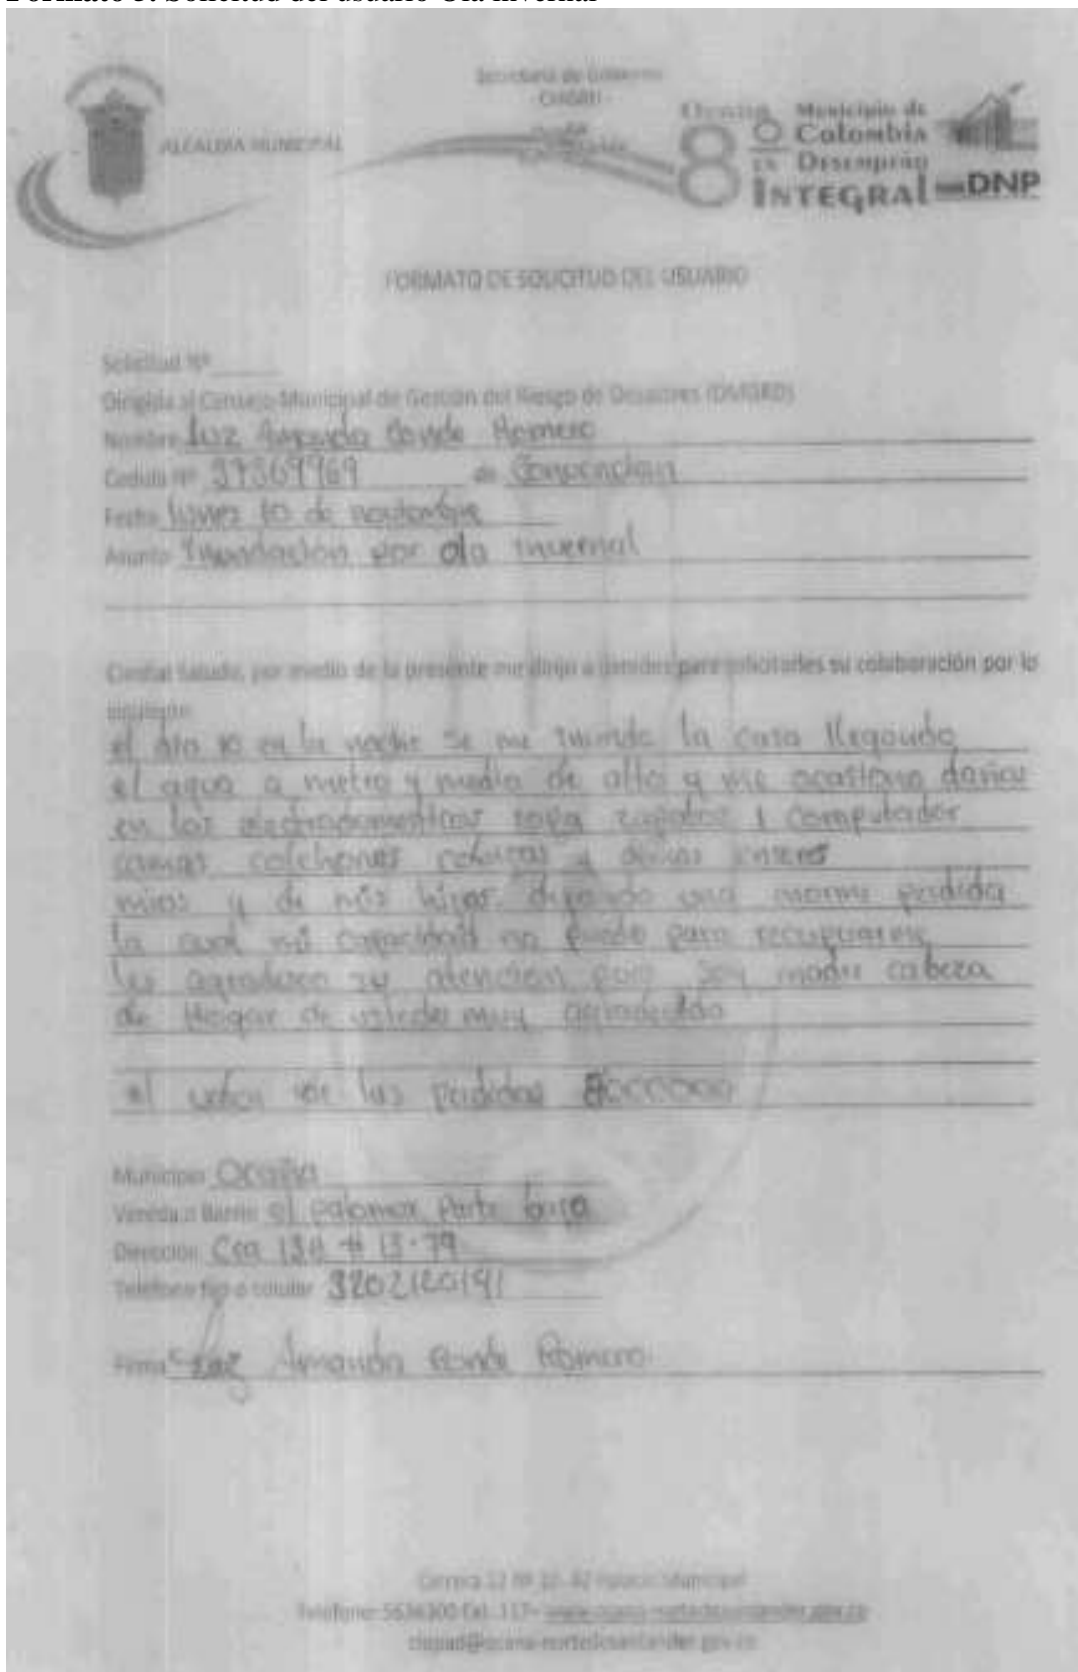 Formato 3. Solicitud del usuario Ola invernal
Secretaría de Gobierno
- CMGRD -
ALCALDIA MUNICIPAL
Ocaña
8º
EN
Municipio de
Colombia
Desempeño
INTEGRAL DNP
FORMATO DE SOLICITUD DEL USUARIO
Solicitud Nº
Dirigida al Consejo Municipal de Gestión del Riesgo de Desastres (CMGRD)
Nombre Luz Amanda Conde Romero
Cedula Nº 37369969 de Convencion
Fecha lunes 10 de noviembre
Asunto Inundacion por ola invernal
Cordial Saludo, por medio de la presente me dirijo a ustedes para solicitarles su colaboración por lo
siguiente:
el dia 10 en la noche se me inundo la casa llegando
el agua a metro y medio de alto y me ocasiono daños
en los electrodomesticos ropa zapatos 1 computador
camas colchones cobijas y demas enseres
mios y de mis hijos dejando una enorme perdida
la cual mi capacidad no puede para recuperarme
les agradesco su atencion pues soy madre cabeza
de Hogar de ustedes muy agradecida
el valor de las perdidas
Municipio Ocaña
Vereda o Barrio el palomar Parte baja
Dirección Cra 13 # 13-79
Teléfono fijo o celular
Firma Luz Amanda Conde Romero
Carrera 12 Palacio Municipal
Teléfono: 5636300 Ext. 117- www.ocana-nortedesantander.gov.co
clopad@ocana-nortedesantander.gov.co